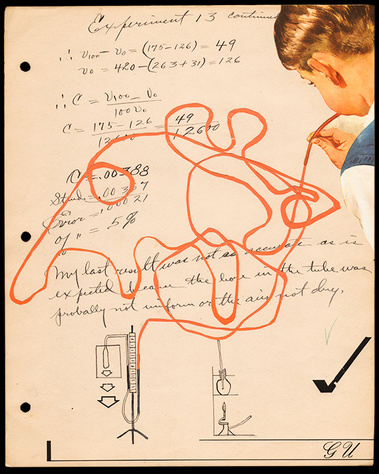 Experiment 13 continued
∴ V100 - V0 = (175-126) = 49
V0 = 420 - (263+31) = 126
∴ C = V100 - V0 / 100 V0
C = 175-126 / 12600 = 49 / 12600
C = .00388
.00367
Error = .00021
% " = 5%
My last result was not as accurate as is
expected because the bore in the tube was
probably not uniform or the air not dry.
GU